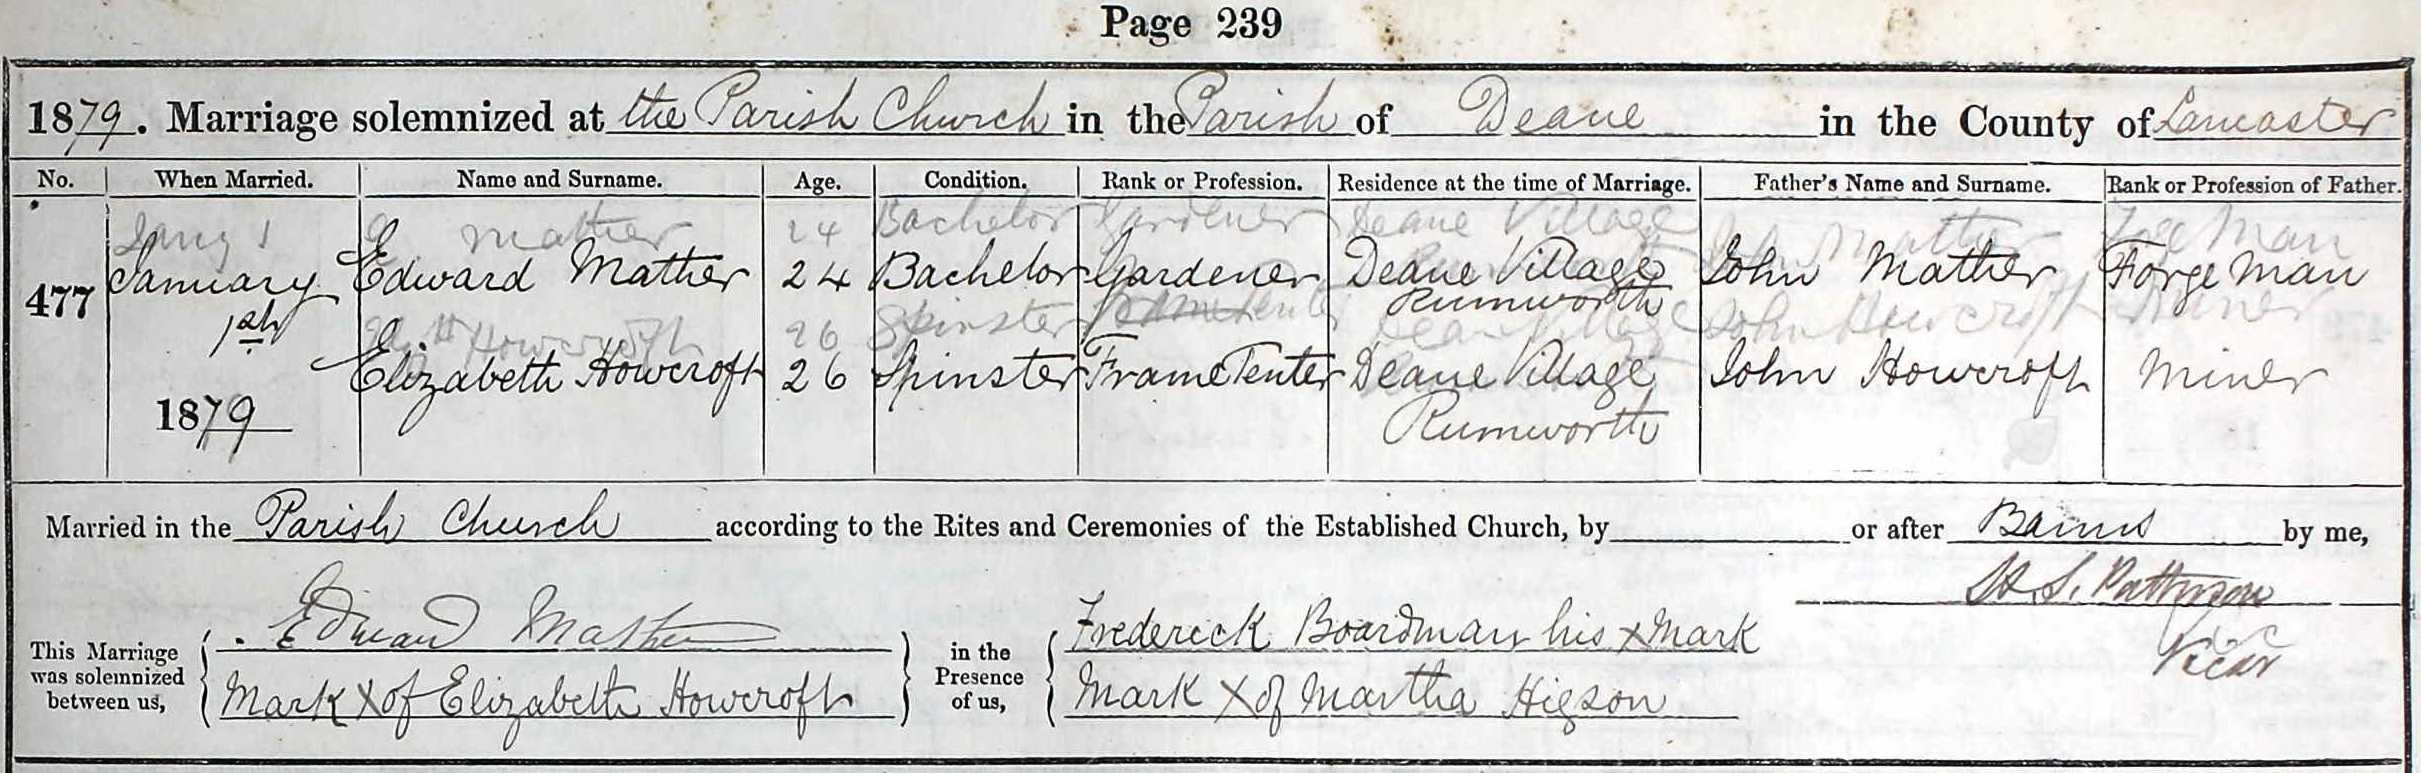 Page 239
1879. Marriage solemnized at the Parish Church in the Parish of Deane in the County of Lancaster
No. When Married. Name and Surname. Age. Condition. Rank or Profession. Residence at the time of Marriage. Father's Name and Surname. Rank or Profession of Father.
Jany 1 Mather 24 Bachelor Gardener Deane Village John Mather Man
477 January 1st 1879 Edward Mather 24 Bachelor Gardener Deane Village Rumworth John Mather Forge Man
Howcroft 26 Spinster Tenter Deane Village John Howcroft Miner
Elizabeth Howcroft 26 Spinster Frame Tenter Deane Village Rumworth John Howcroft Miner
Married in the Parish Church according to the Rites and Ceremonies of the Established Church, by or after Banns by me,
H. S. Patterson
Vicar
This Marriage was solemnized between us, Edward Mather in the Presence of us, Frederick Boardman his X Mark
Mark X of Elizabeth Howcroft Mark X of Martha Higson